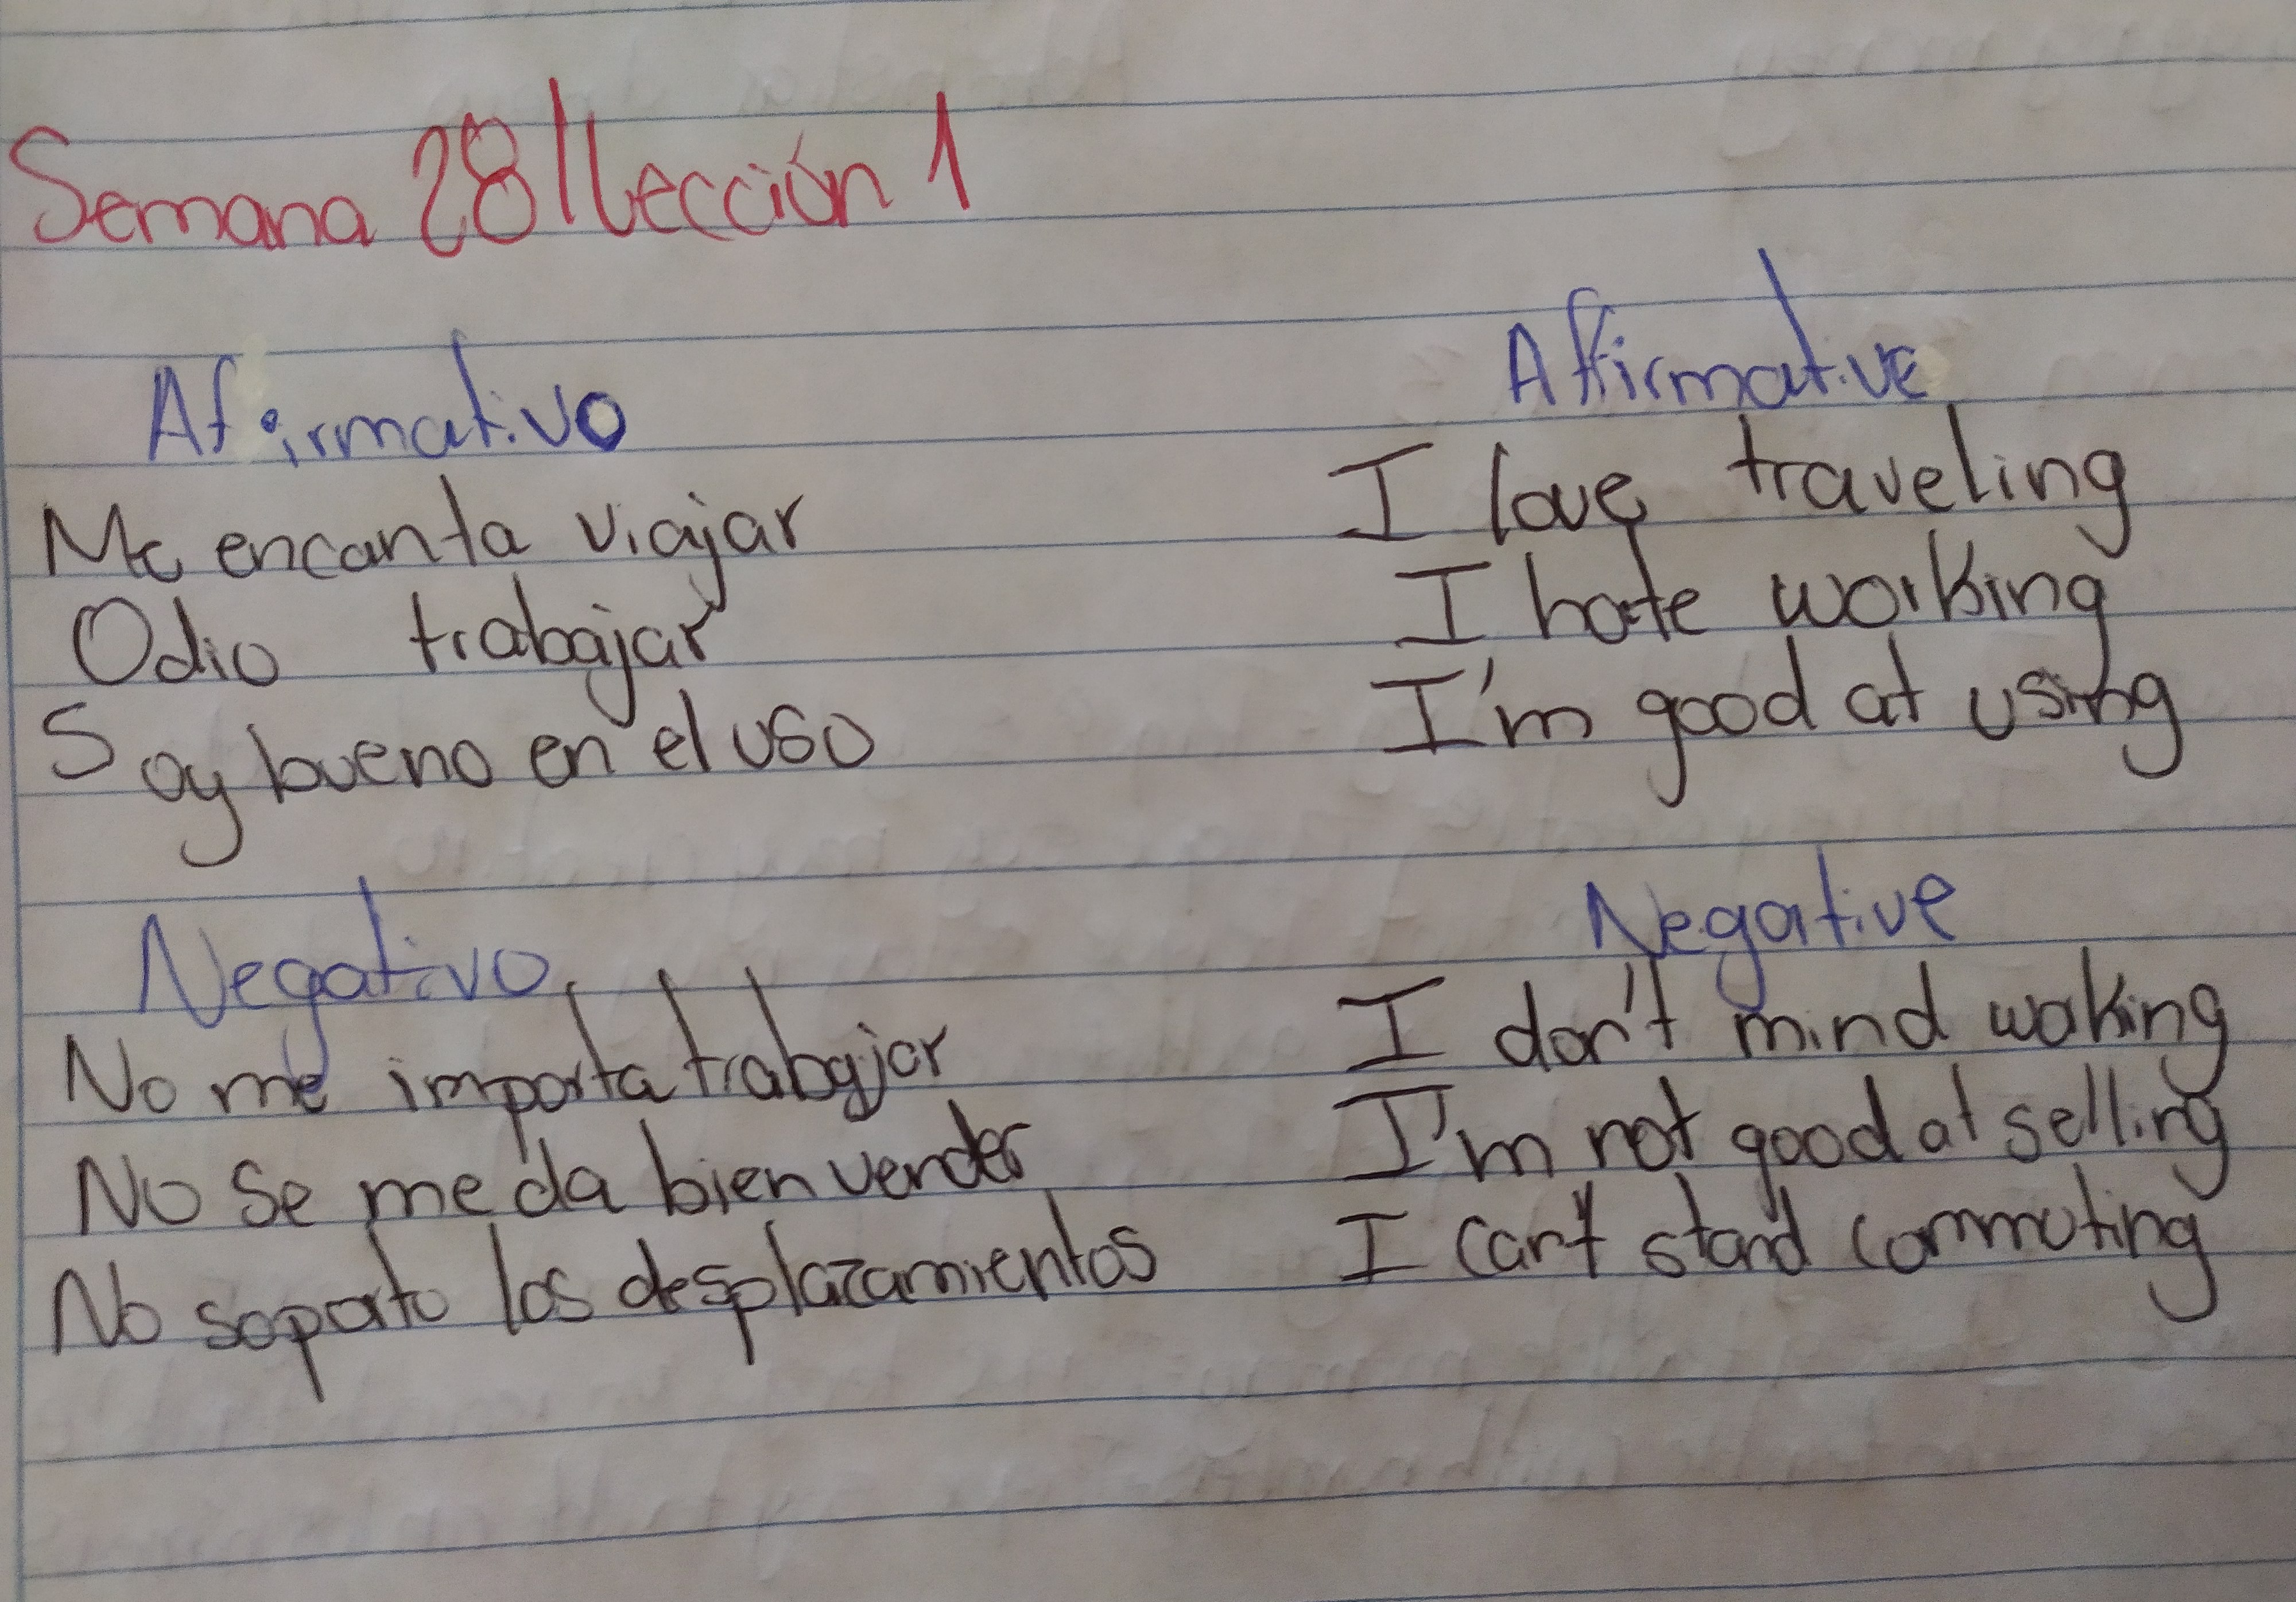 Semana 28/Lección 1
Afirmativo
Affirmative
Me encanta viajar
I love traveling
Odio trabajar
I hate working
Soy bueno en el uso
I'm good at using
Negativo
Negative
No me importa trabajar
I don't mind woking
No se me da bien vender
I'm not good at selling
No soporto los desplazamientos
I can't stand commuting